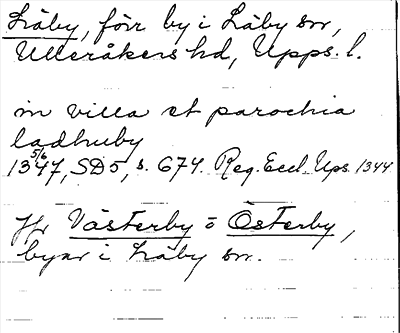 Läby, förr by i Läby sn,
Ulleråkers hd, Upps. l.
in villa et parochia
ladhuby
13 5/6 47, SD 5, s. 674. Reg. Eccl. Ups. 1344
Jfr Västerby o Österby,
byar i Läby sn.